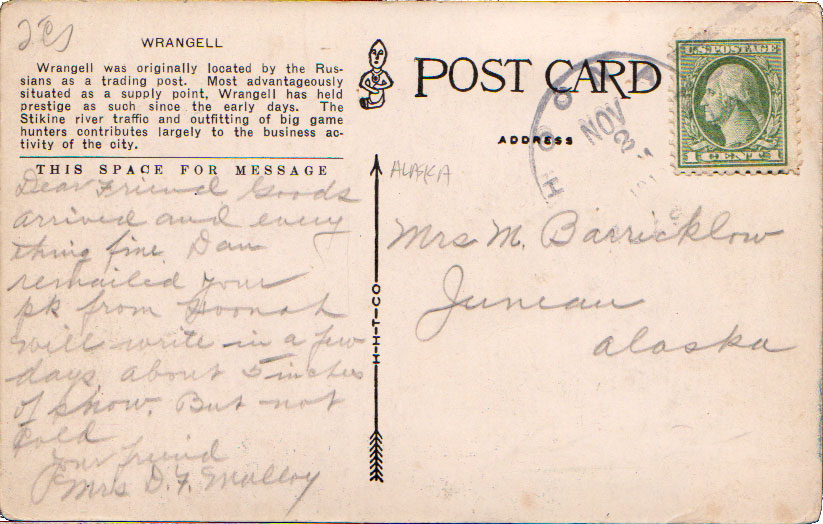 WRANGELL
Wrangell was originally located by the Rus-
sians as a trading post. Most advantageously
situated as a supply point, Wrangell has held
prestige as such since the early days. The
Stikine river traffic and outfitting of big game
hunters contributes largely to the business ac-
tivity of the city.
THIS SPACE FOR MESSAGE
Dear Friend Goods
arrived and every
thing fine. Dan
remailed your
pk from Hoonah
will write in a few
days. about 5 inches
of snow. But not
Cold
Your friend
Mrs D. F. Malloy
H-H-T-CO
POST CARD
ADDRESS
ALASKA
HOONA
NOV
U.S. POSTAGE
1 CENT 1
Mrs M. Barricklow
Juneau
Alaska